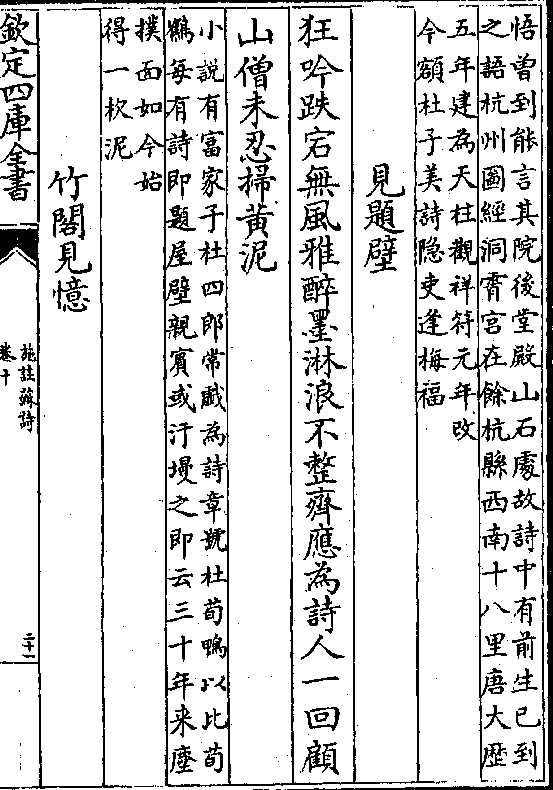 悟曾到能言其院後堂殿山石處故詩中有前生已到
之語杭州圖經洞霄宮在餘杭縣西南十八里唐大歴
五年建為天柱觀祥符元年改
今額杜子美詩隐吏逢梅福
見題壁
狂吟跌宕無風雅醉墨淋浪不整齊應為詩人一回顧
山僧未忍掃黄泥
小說有富家子杜四郎常戱為詩章號杜荀鴨以比荀
鶴每有詩即題屋壁親賓或汙墁之即云三十年来塵
撲面如今始
得一杴泥
竹閣見憶
欽定四庫全書
施註蘇詩
卷十
二十一